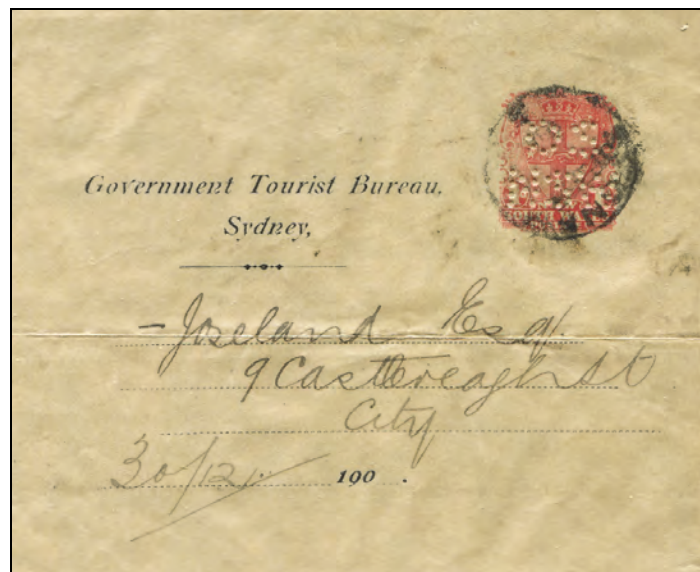 Government Tourist Bureau,
Sydney,
- Joseland Esq.
9 Castlereagh St
City
30/12/ 190 .